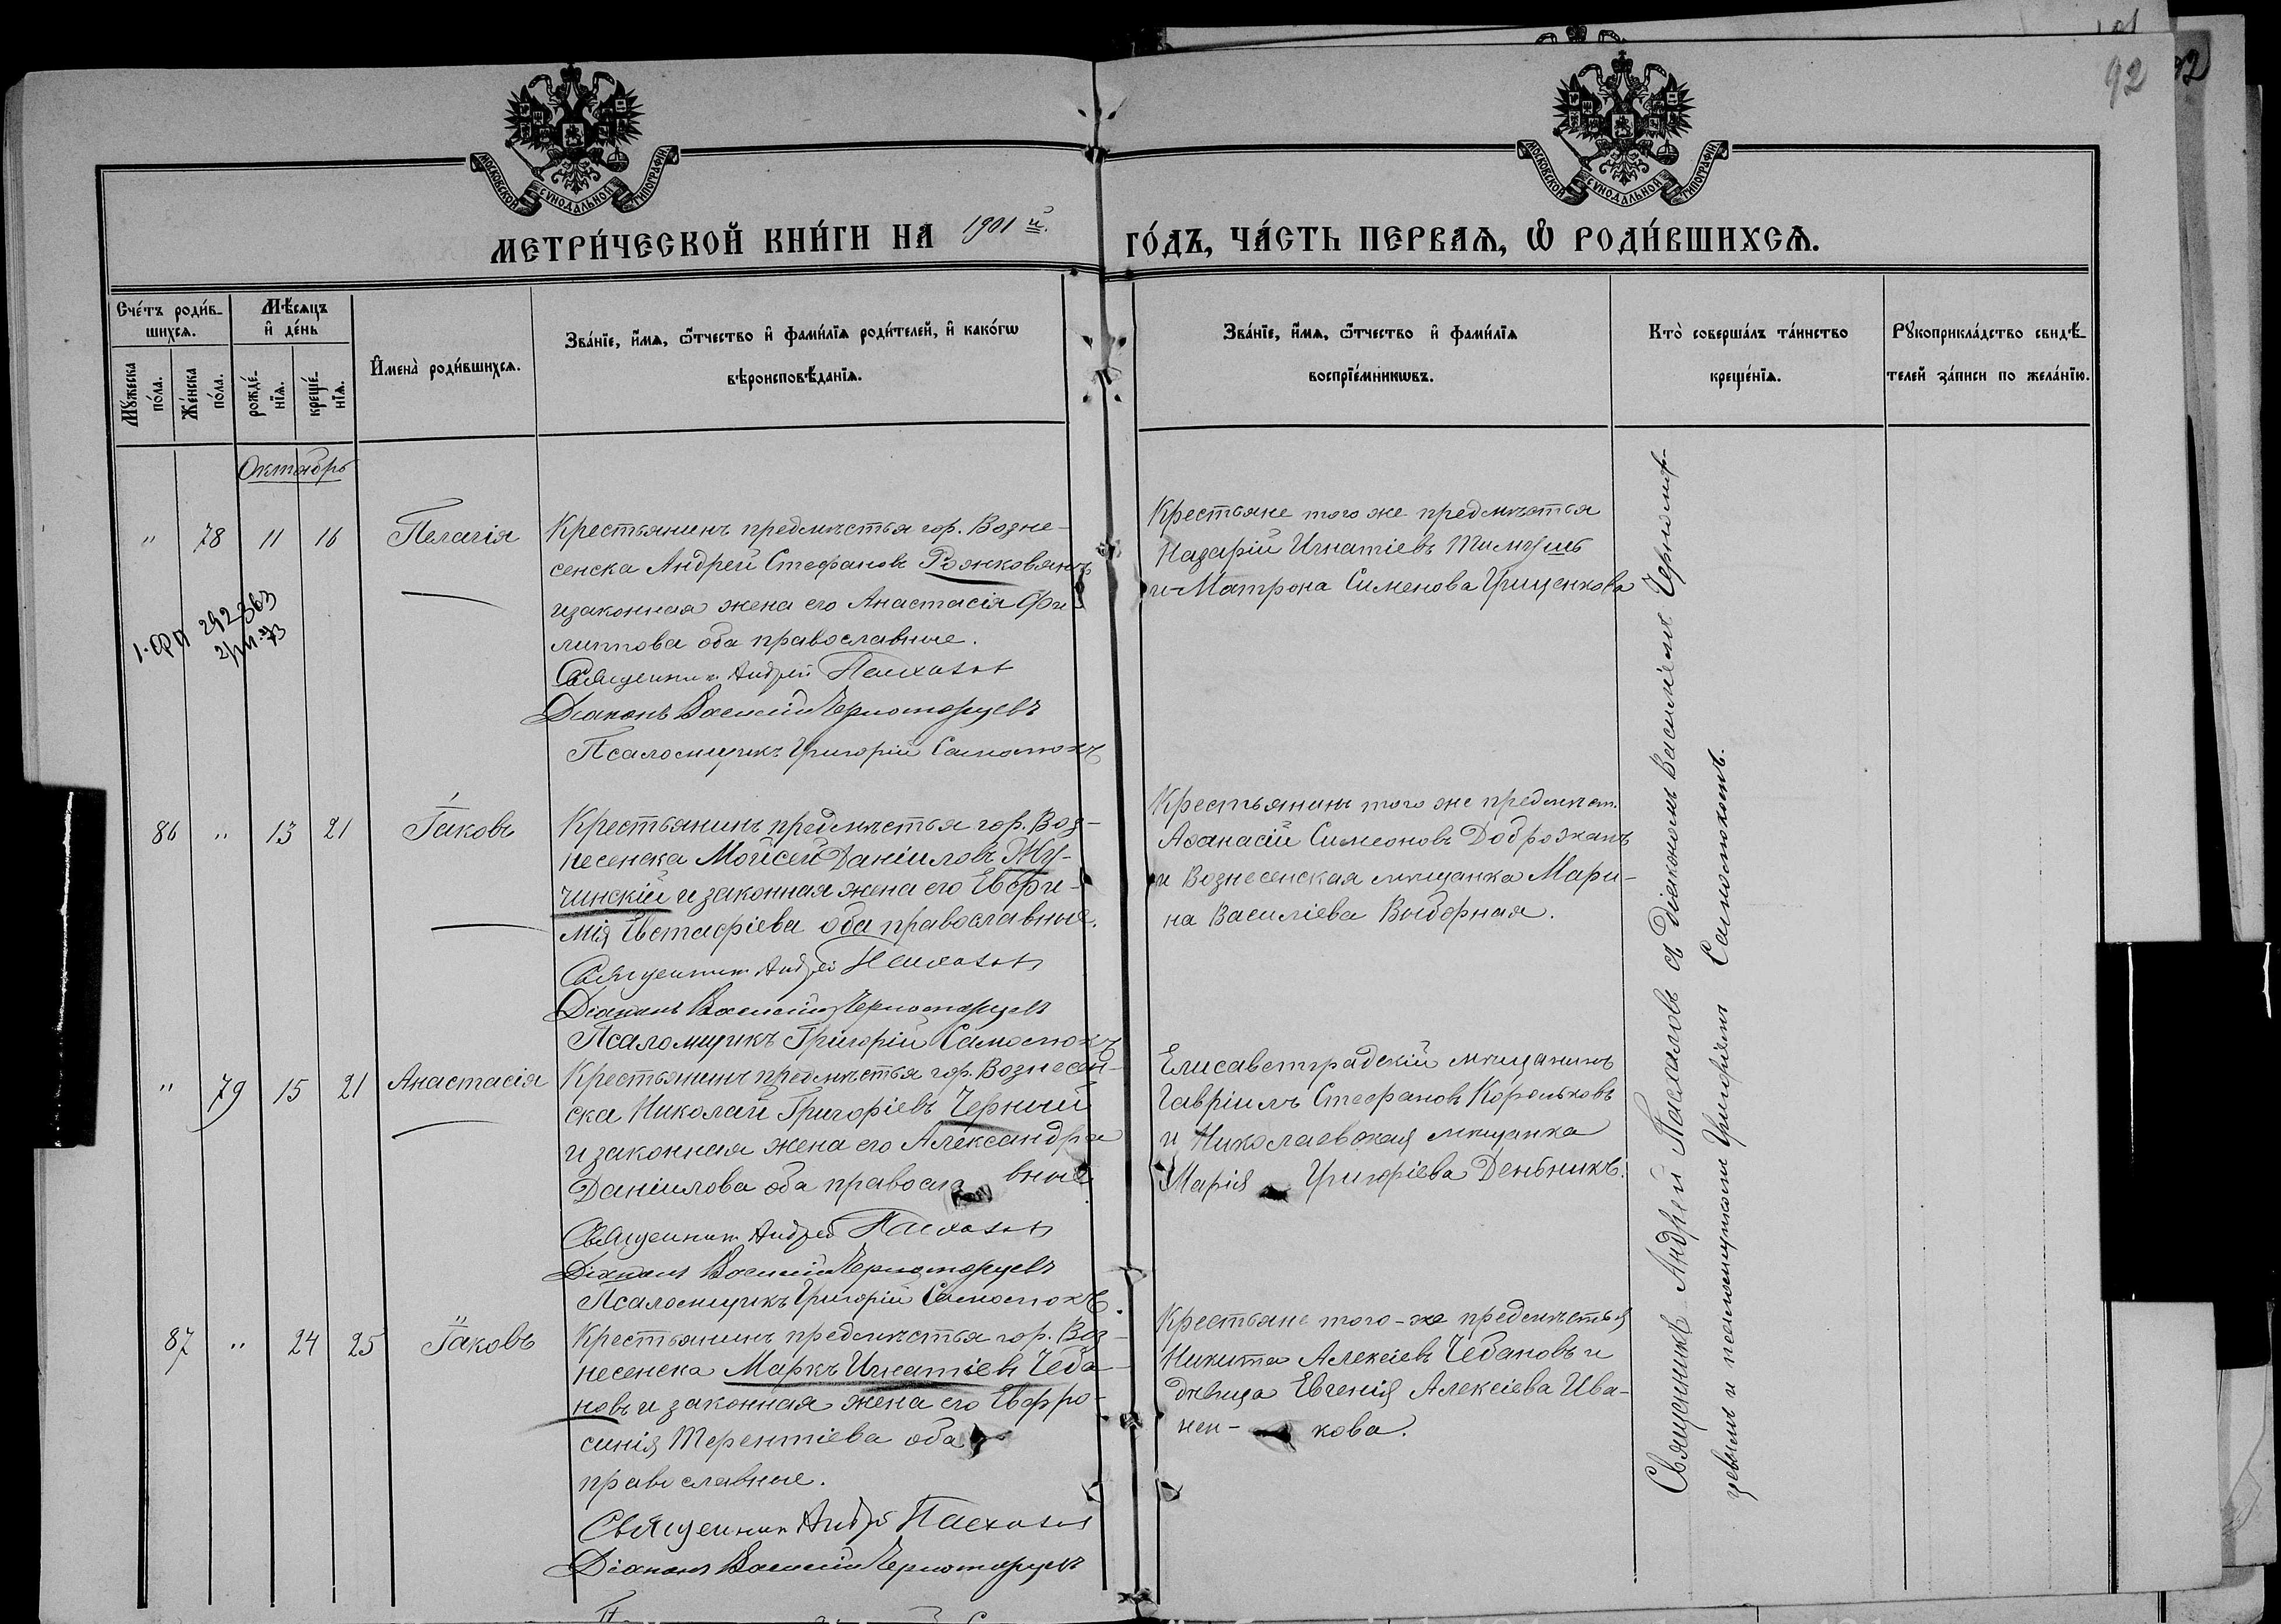 92
92
МОСКОВСКОЙ СѴНОДАЛЬНОЙ ТИПОГРАФІИ
МОСКОВСКОЙ СѴНОДАЛЬНОЙ ТИПОГРАФІИ
МЕТРИ́ЧЕСКОЙ КНИ́ГИ НА 1901 й. ГО́ДЪ, ЧА́СТЬ ПЕРВАѦ, Ѡ҆ РОДИ́ВШИХСѦ.
Сче́тъ роди́в-
шихсѧ.
Мꙋ́жеска
по́ла.
Же́нска
по́ла.
Мѣ́сѧцъ
и҆ де́нь
рожде́-
нїѧ.
креще́-
нїѧ.
И҆мена̀ роди́вшихсѧ.
Зва́нїе, и҆́мѧ, ѻ҆́тчество и҆ фами́лїѧ роди́телей, и҆ како́гѡ
вѣроисповѣ́данїѧ.
Зва́нїе, и҆́мѧ, ѻ҆́тчество и҆ фами́лїѧ
воспрїе́мникѡвъ.
Кто̀ соверша́лъ та́инство
креще́нїѧ.
Рꙋкоприкла́дство свидѣ́-
телей за́писи по жела́нїю.
Октябрь
" 78 11 16 Пелагія
Крестьянинъ предмѣстья гор. Возне-
сенска Андрей Стефановъ Рожковянъ
и законная жена его Анастасія Фи-
липпова оба православные.
Священникъ Андрей Пасхаловъ
Діаконъ Василій Черноморцевъ
Псаломщикъ Григорій Самотокъ
Крестьяне того же предмѣстья
Назарій Игнатіевъ
и Матрона Сименова Грищенкова
292363
86 " 13 21 Іаковъ
Крестьянинъ предмѣстья гор. Воз-
несенска Мойсей Даніиловъ Жу-
чинскій и законная жена его Евфи-
мія Евстафіева оба православные.
Священникъ Андрей Пасхаловъ
Діаконъ Василій Черноморцевъ
Псаломщикъ Григорій Самотокъ
Крестьянинъ того же предмѣст.
Аѳанасій Симеоновъ Доброжанъ
и Вознесенская мѣщанка Мари-
на Василіева Выборная.
" 79 15 21 Анастасія
Крестьянинъ предмѣстья гор. Вознесен-
ска Николай Григоріевъ Черный
и законная жена его Александра
Даніилова оба православные
Священникъ Андрей Пасхаловъ
Діаконъ Василій Черноморцевъ
Псаломщикъ Григорій Самотокъ.
Елисаветградскій мѣщанинъ
Гавріилъ Стефановъ Корольковъ
и Николаевская мѣщанка
Марія Григоріева
87 " 24 25 Іаковъ
Крестьянинъ предмѣстья гор. Воз-
несенска Маркъ Игнатіевъ Чеба-
новъ и законная жена его Евфро-
синія Терентіева оба
православные.
Священникъ Андрей Пасхаловъ
Діаконъ Василій Черноморцевъ
Крестьяне того-же предмѣстья
Никита Алексіевъ Чебановъ и
дѣвица Евгенія Алексіева Ива-
нен- кова.
Священникъ Андрей Пасхаловъ съ діакономъ Василіемъ Черномор-
цевымъ и псаломщикомъ Григоріемъ Самотокомъ.